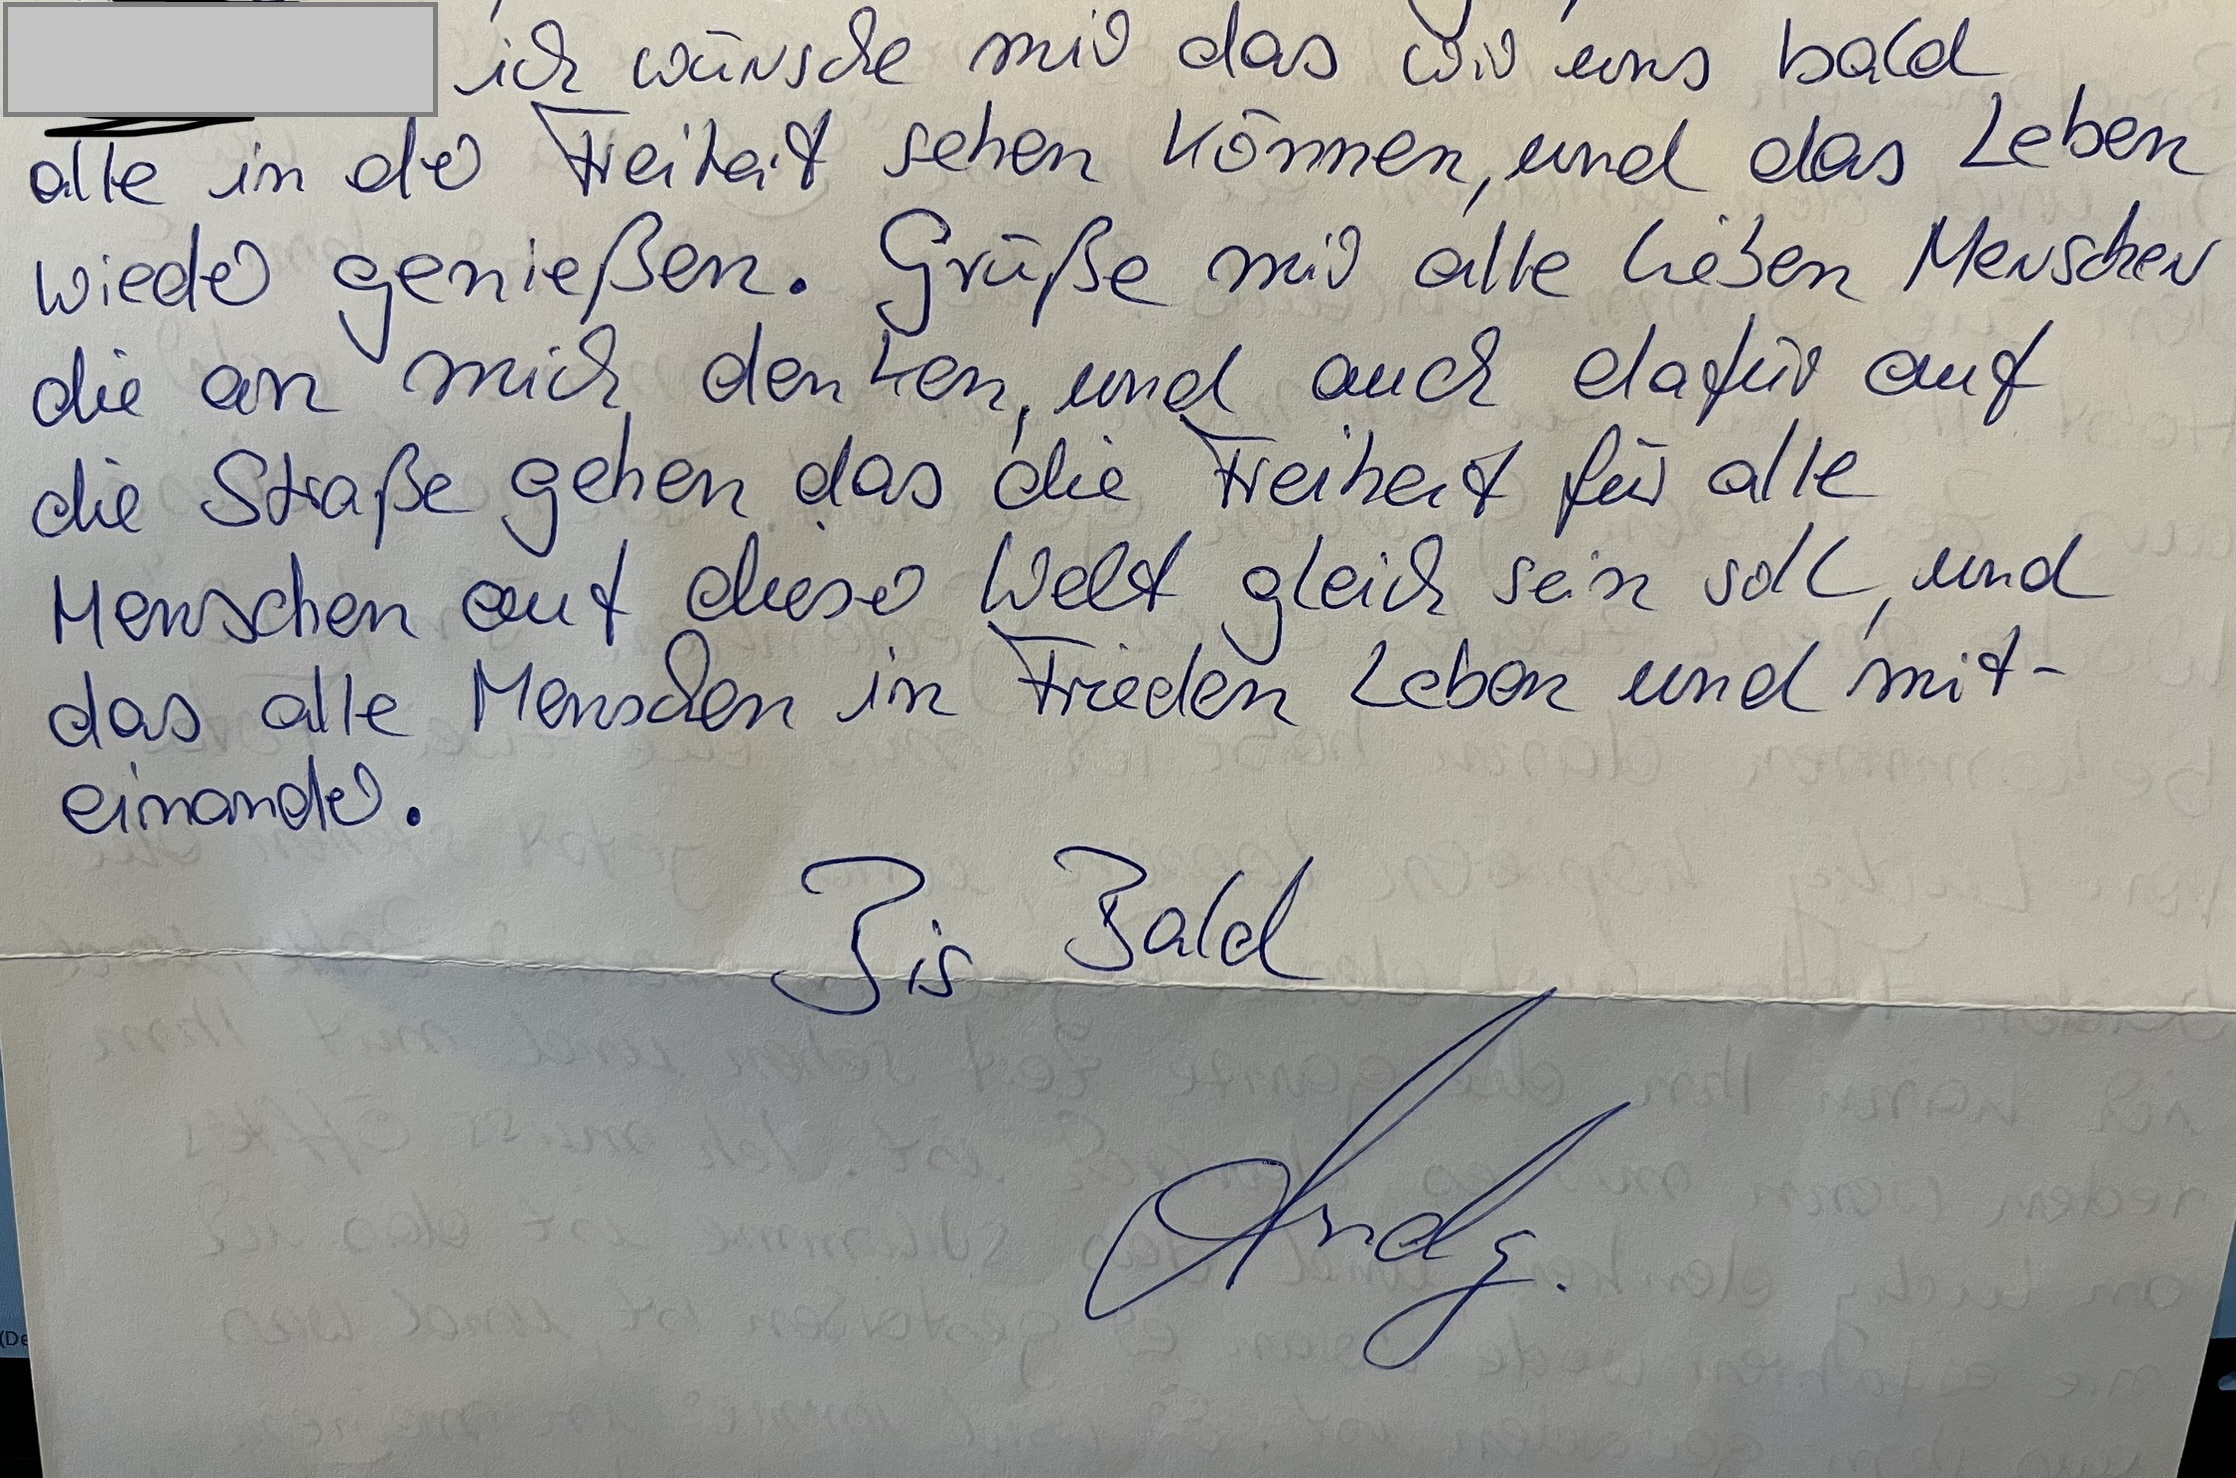 ich wünsche mir das wir uns bald
alle in der Freiheit sehen können, und das Leben
wieder genießen. Grüße mir alle lieben Menschen
die an mich denken, und auch dafür auf
die Straße gehen das die Freiheit für alle
Menschen auf dieser Welt gleich sein soll, und
das alle Menschen in Frieden Leben und mit-
einander.
Bis Bald
Andy.